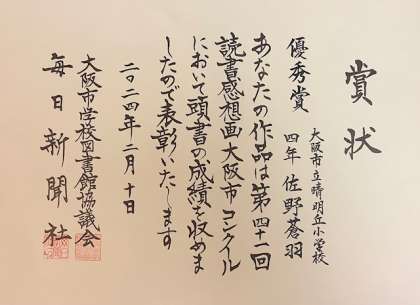 賞状
大阪市立晴明丘小学校
優秀賞
四年 佐野蒼羽
あなたの作品は第四十一回
読書感想画大阪市コンクール
において頭書の成績を収めま
したので表彰いたします
二〇二四年二月十日
大阪市学校図書館協議会
毎日新聞社